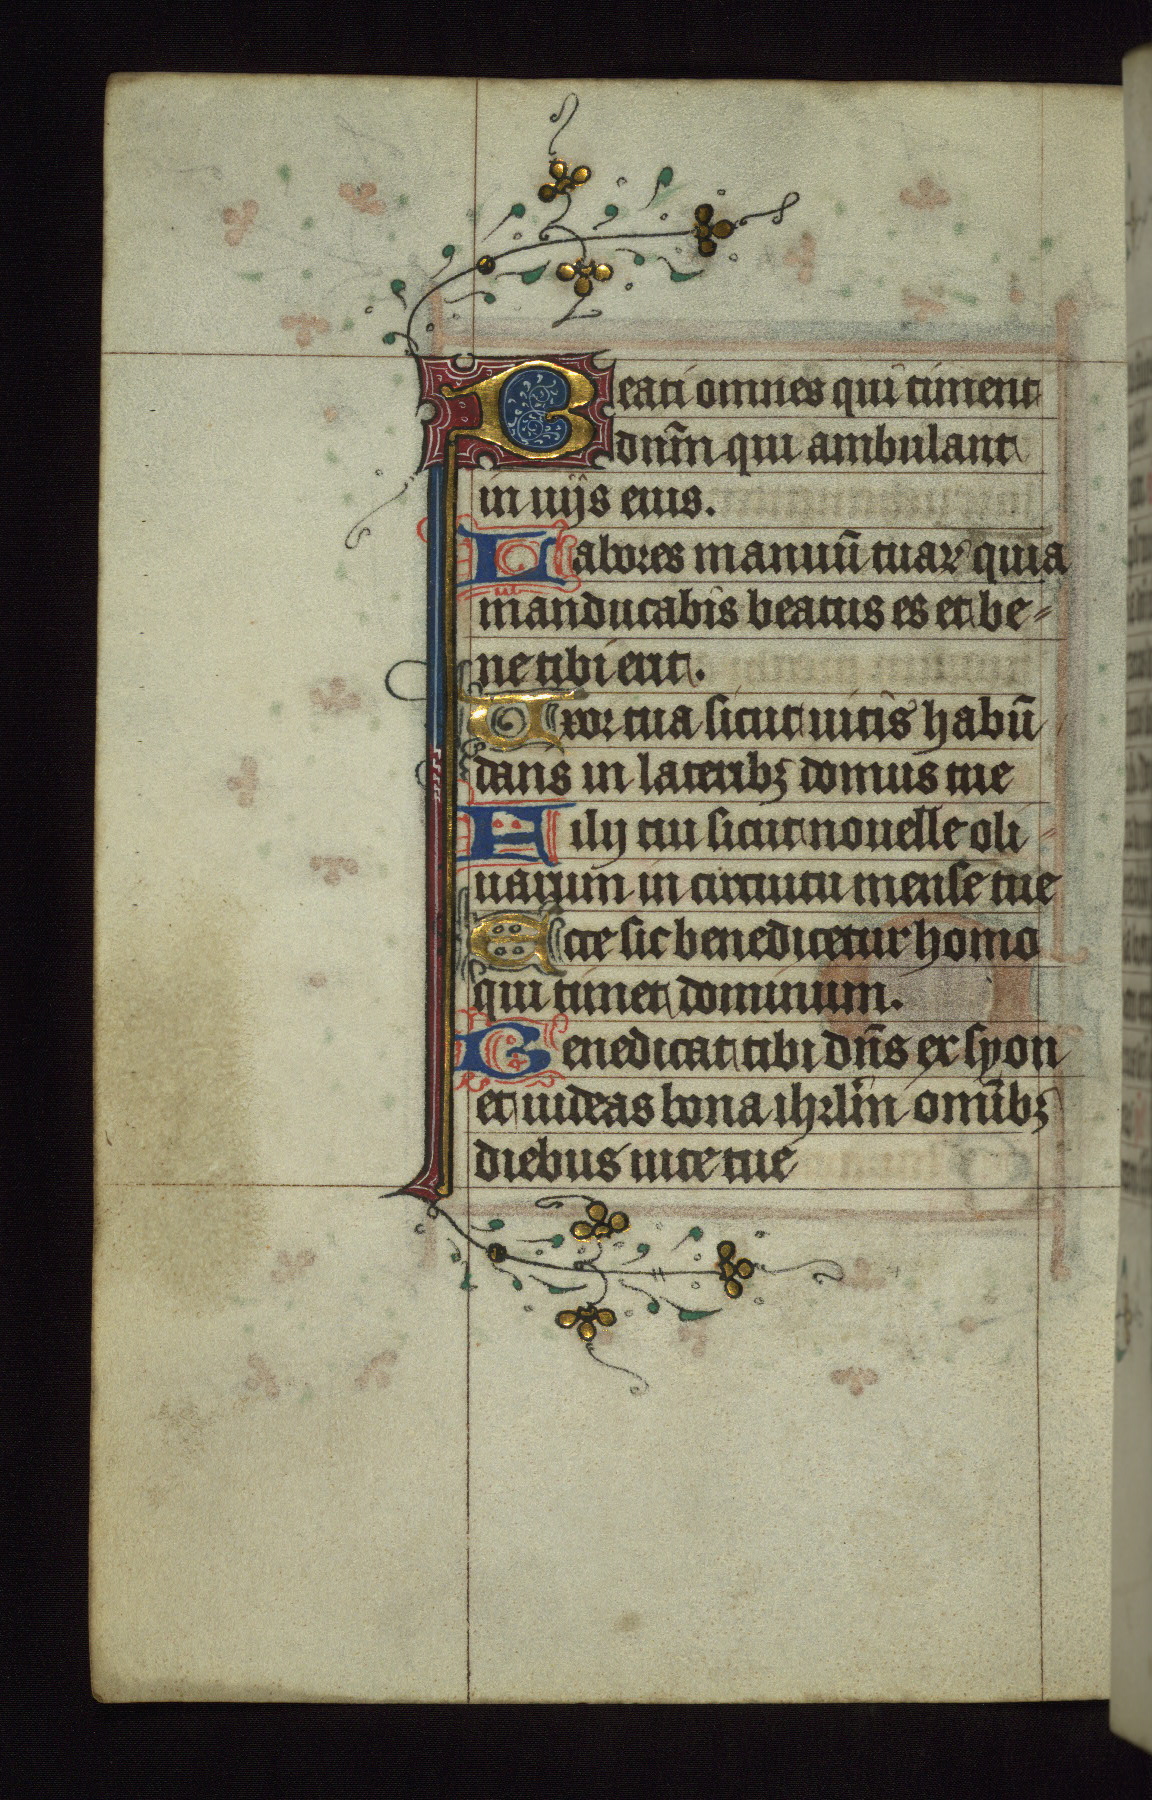 Beati omnes qui timent
dnm̄ qui ambulant
in uijs eius.
Labores manuū tuaꝝ quia
manducabis beatus es et be-
ne tibi erit.
Vxor tua sicut uitis habū
dans in lateribꝫ domus tue
Filij tui sicut nouelle oli-
uarum in circuitu mense tue
Ecce sic benedicetur homo
qui timet dominum.
Benedicat tibi dn̄s ex syon
et uideas bona ihrlm̄ omībꝫ
diebus uite tue